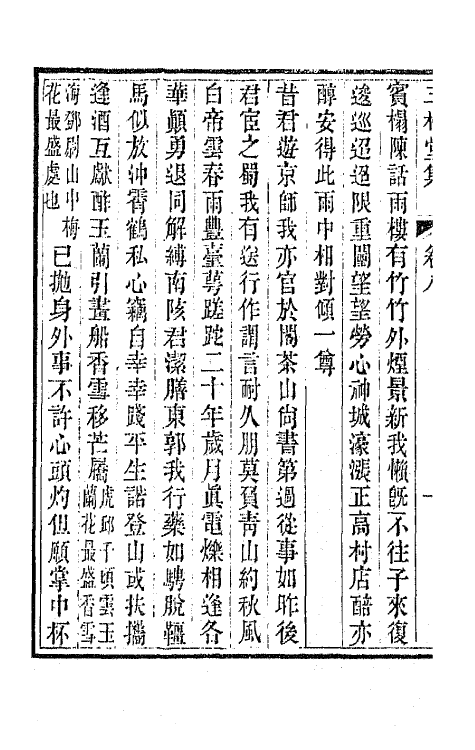 賓榻陳話雨樓有竹竹外煙景新我懶旣不往子來復
逡巡迢迢限重闉望望勞心神城濠漲正高村店醅亦
醇安得此雨中相對傾一尊
昔君遊京師我亦官於閣茶山尙書第過從事如昨後
君宦之蜀我有送行作謂言耐久朋莫負靑山約秋風
白帝雲春雨豐臺蕚蹉跎二十年歲月眞電爍相逢各
華顚勇退同解縛南陔君潔膳東郭我行藥如騁脫韁
馬似放沖霄鶴私心竊自幸幸踐平生諾登山或扶攜
逢酒互獻酢玉蘭引畫船香雪移芒屩虎邱千頃雲玉蘭花最盛香雪
海鄧尉山中梅花最盛處也已拋身外事不許心頭灼但願掌中杯